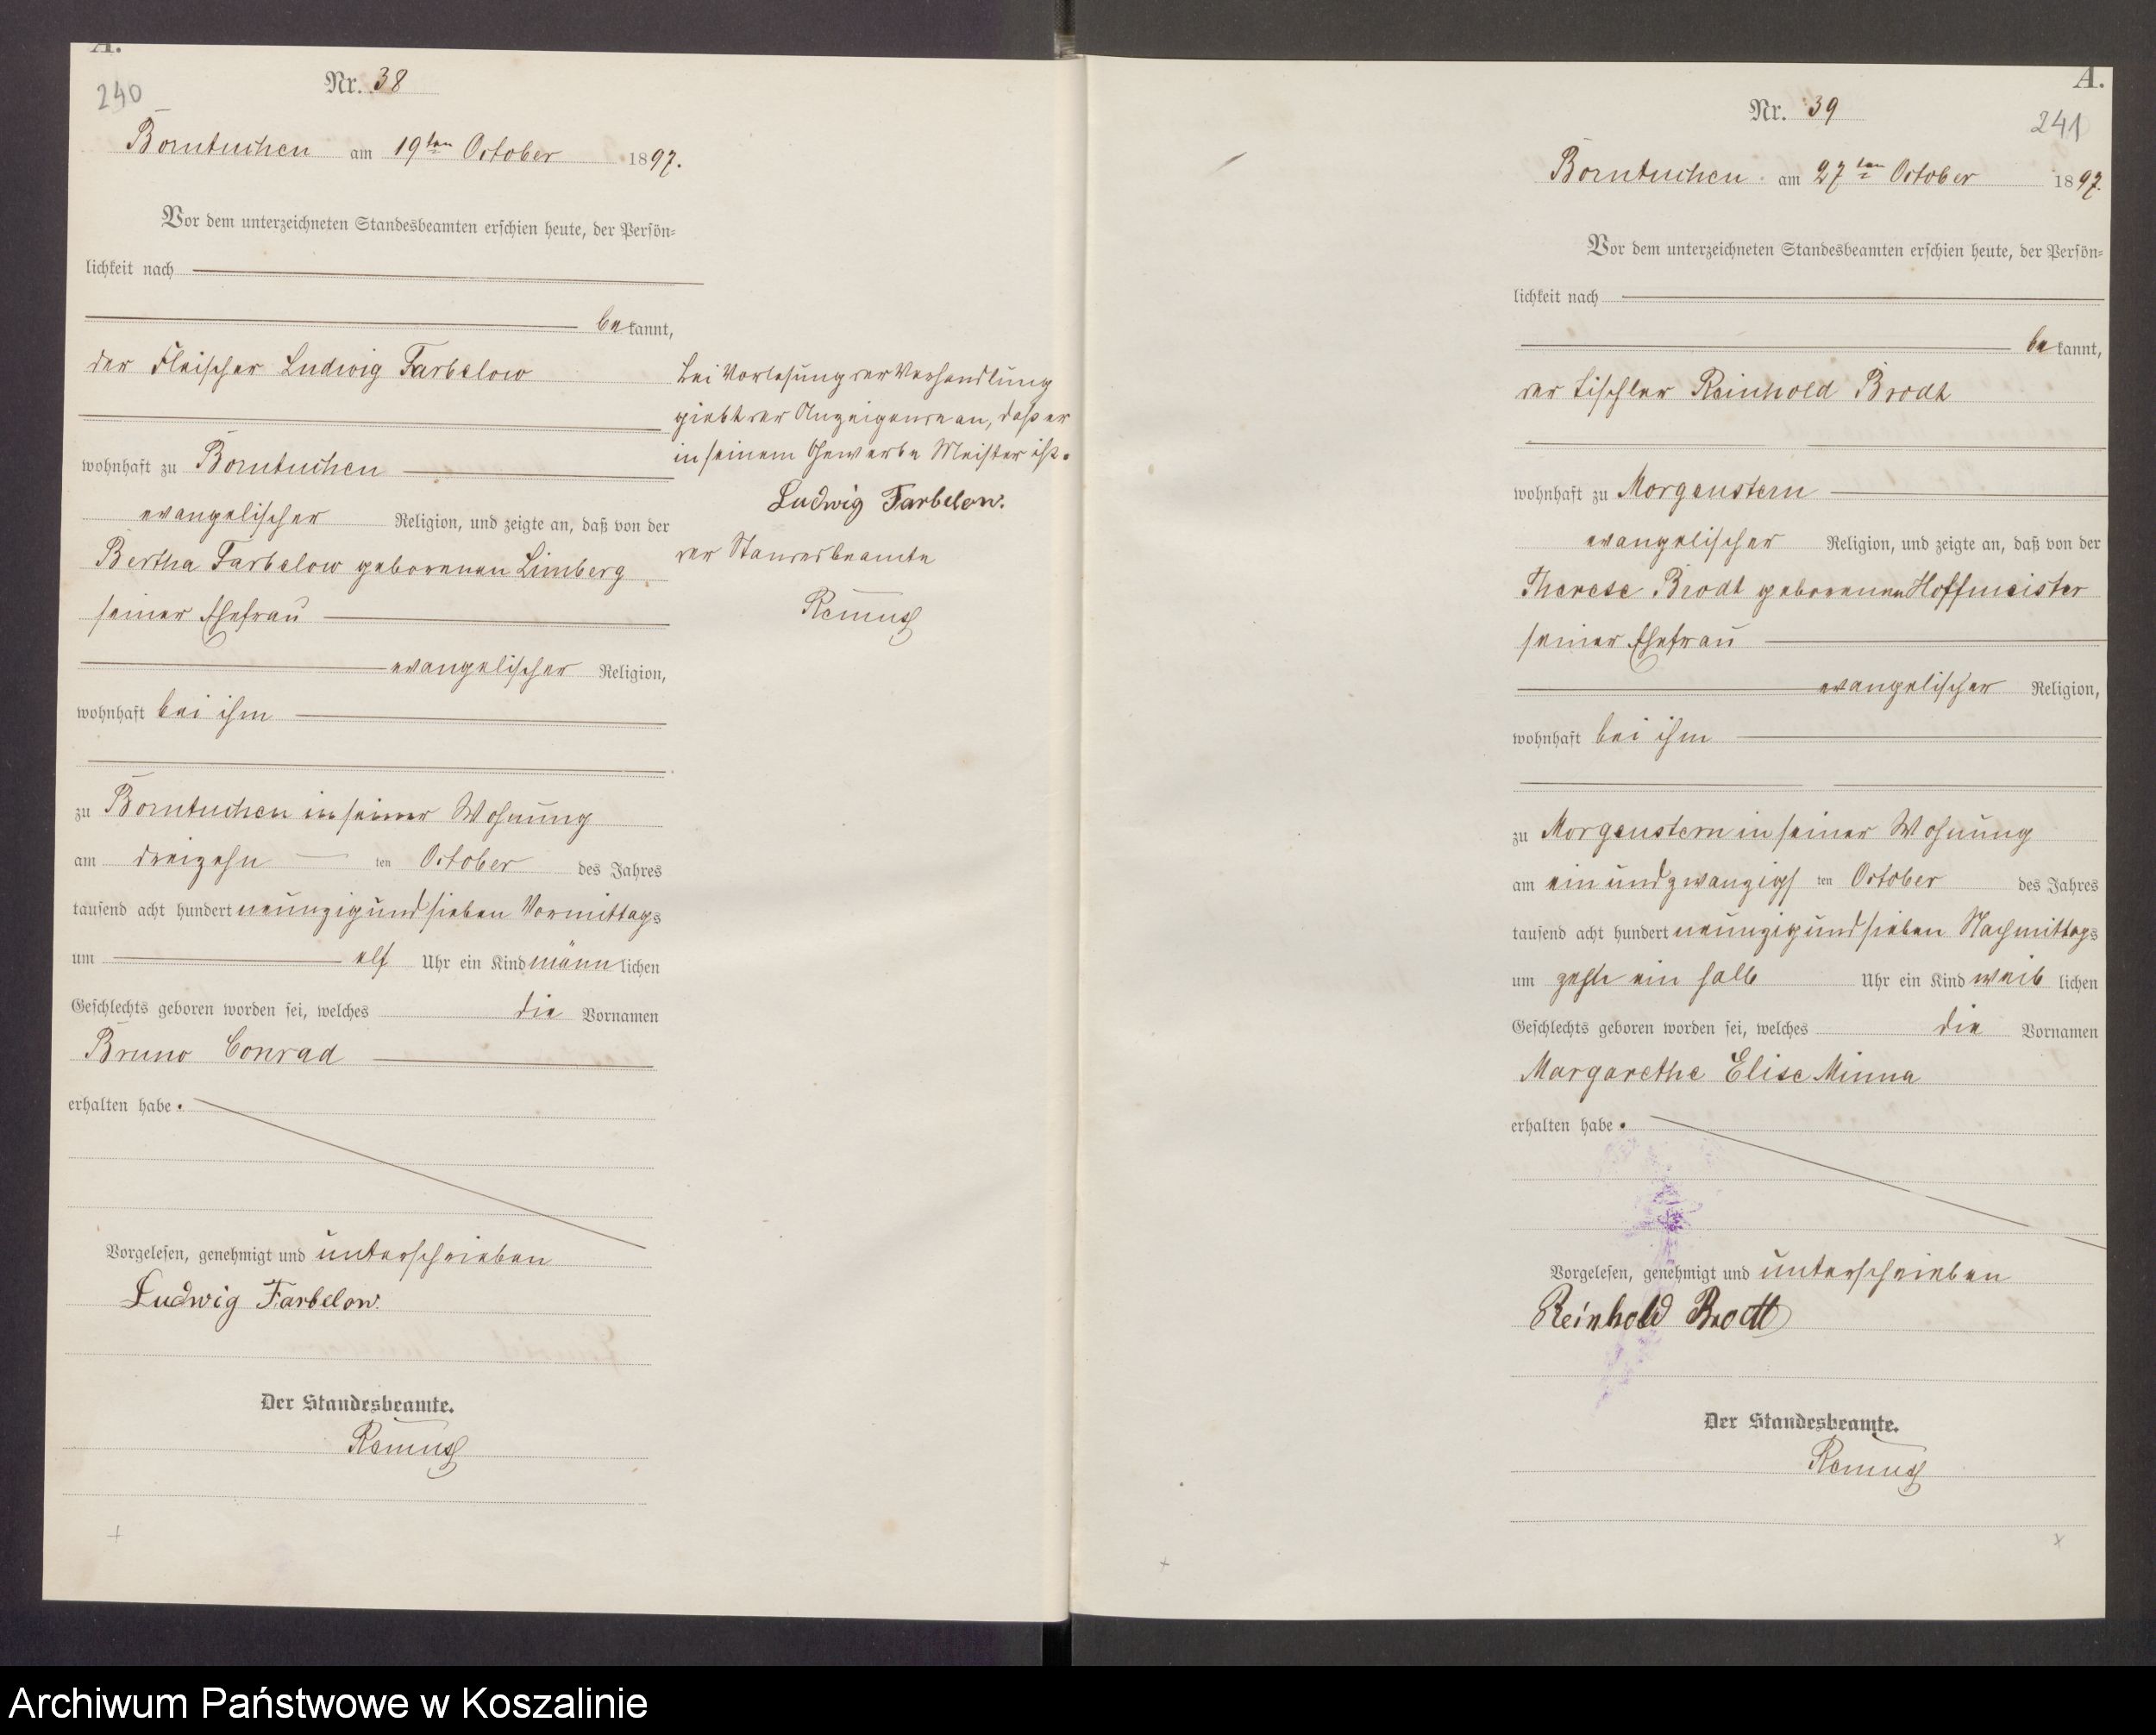 A.
240
Nr. 38
Borntuchen am 19ten October 1897.
Vor dem unterzeichneten Standesbeamten erschien heute, der Persön-
lichkeit nach
bekannt,
der Fleischer Ludwig Farbelow
wohnhaft zu Borntuchen
evangelischer Religion, und zeigte an, daß von der
Bertha Farbelow geborenen Limberg
seiner Ehefrau
evangelischer Religion,
wohnhaft bei ihm
zu Borntuchen in seiner Wohnung
am dreizehn ten October des Jahres
tausend acht hundert neunzig und sieben Vormittags
um elf Uhr ein Kind männlichen
Geschlechts geboren worden sei, welches die Vornamen
Bruno Conrad
erhalten habe.
Vorgelesen, genehmigt und unterschrieben
Ludwig Farbelow.
Der Standesbeamte.
Remus
Bei Vorlesung der Verhandlung
giebt der Anzeigende an, daß er
in seinem Gewerbe Meister ist.
Ludwig Farbelow.
der Standesbeamte
Remus
A.
241
Nr. 39
Borntuchen am 27ten October 1897.
Vor dem unterzeichneten Standesbeamten erschien heute, der Persön-
lichkeit nach
bekannt,
der Tischler Reinhold Brodt
wohnhaft zu Morgenstern
evangelischer Religion, und zeigte an, daß von der
Therese Brodt geborenen Hoffmeister
seiner Ehefrau
evangelischer Religion,
wohnhaft bei ihm
zu Morgenstern in seiner Wohnung
am ein und zwanzigs ten October des Jahres
tausend acht hundert neunzig und sieben Nachmittags
um zehn ein halb Uhr ein Kind weiblichen
Geschlechts geboren worden sei, welches die Vornamen
Margarethe Elise Minna
erhalten habe.
Vorgelesen, genehmigt und unterschrieben
Reinhold Brodt
Der Standesbeamte.
Remus
Archiwum Państwowe w Koszalinie